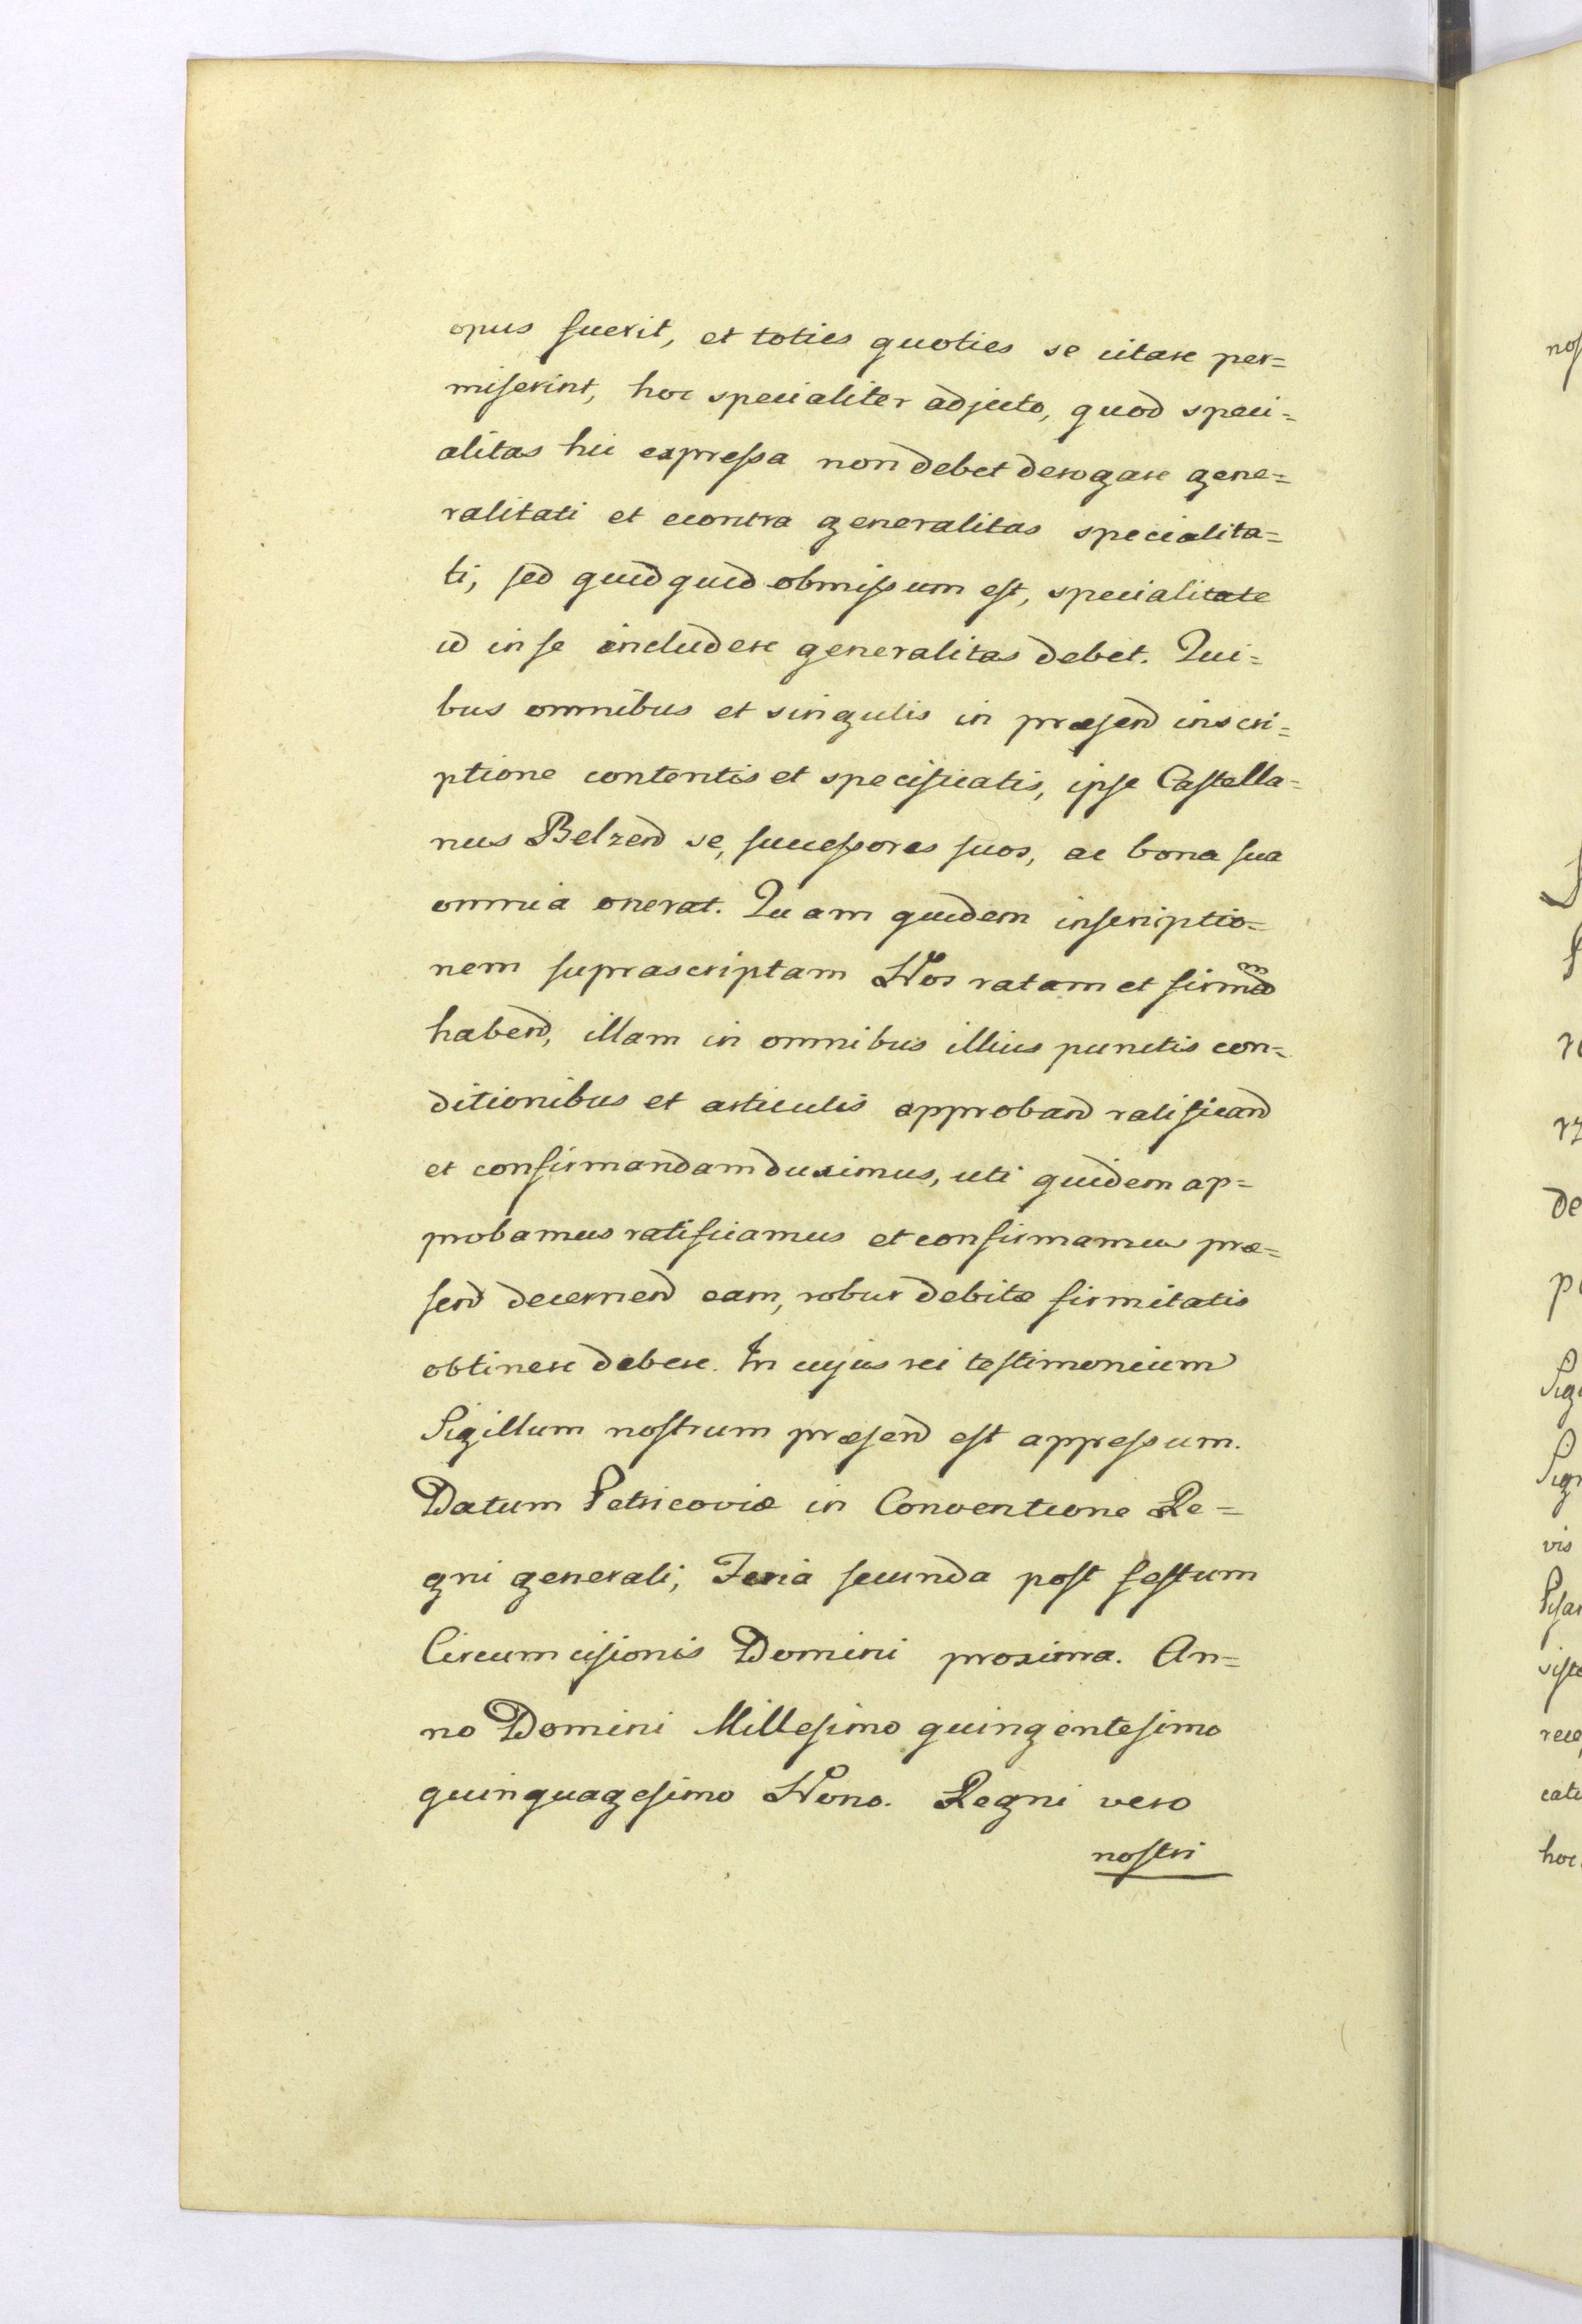 opus fuerit, et toties quoties se citare per=
miserint, hoc specialiter adjecto, quod speci=
alitas hic expressa non debet derogare gene=
ralitati et econtra generalitas specialita=
ti, sed quidquid obmissum est, specialitate
id in se includere generalitas debet. Qui=
bus omnibus et singulis in præsend inscri=
ptione contentis et specificatis, ipse Castella=
nus Belzend se, successores suos, ac bona sua
omnia onerat. Quam quidem inscriptio=
nem suprascriptam Nos ratam et firmam
habend, illam in omnibus illius punctis con=
ditionibus et articulis approband ratificand
et confirmandam duximus, uti quidem ap=
probamus ratificamus et confirmamus præ=
send decernend eam, robur debitæ firmitatis
obtinere debere. In cujus rei testimonium
Sigillum nostrum præsend est appressum.
Datum Petricoviæ in Conventione Re=
gni generali, Feria secunda post festum
Circumcisionis Domini proxima. An=
no Domini Millesimo quingentesimo
quinquagesimo Nono. Regni vero
nostri